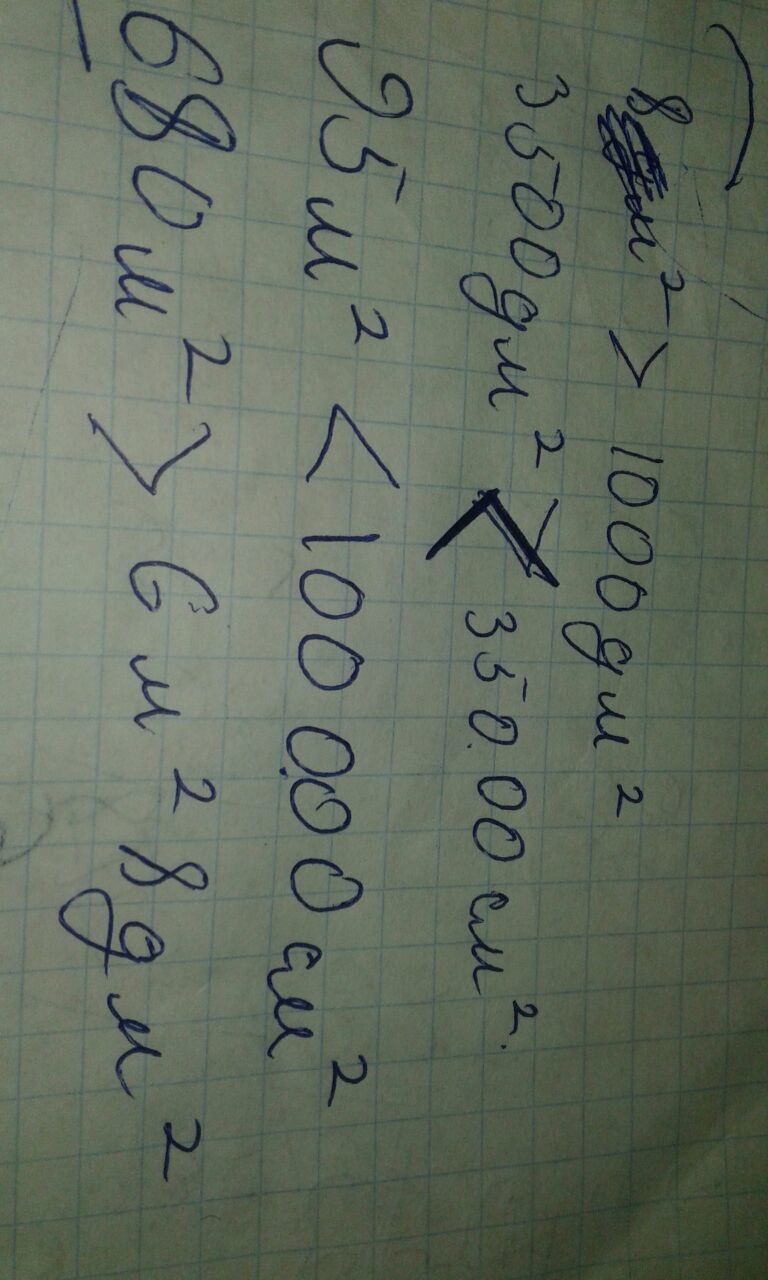 8 м² > 100 дм²
3500 дм² > 350.00 см².
95 м² < 100.000 см²
680 м² > 6 м² 8 дм²